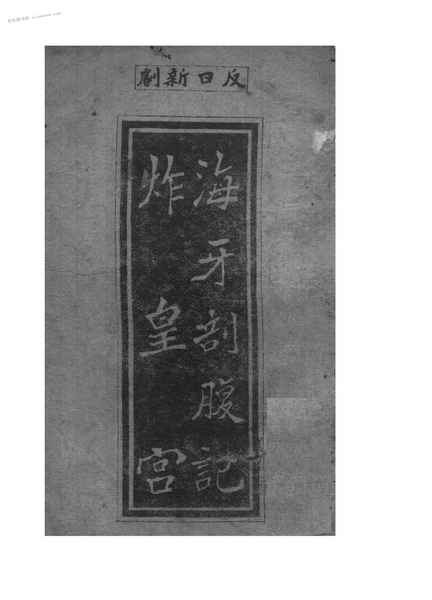 反日新劇
海牙剖腹記
炸皇宮